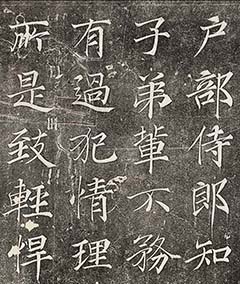 戶部侍郎知
子弟輩不務
有過犯情理
所是致輕悍